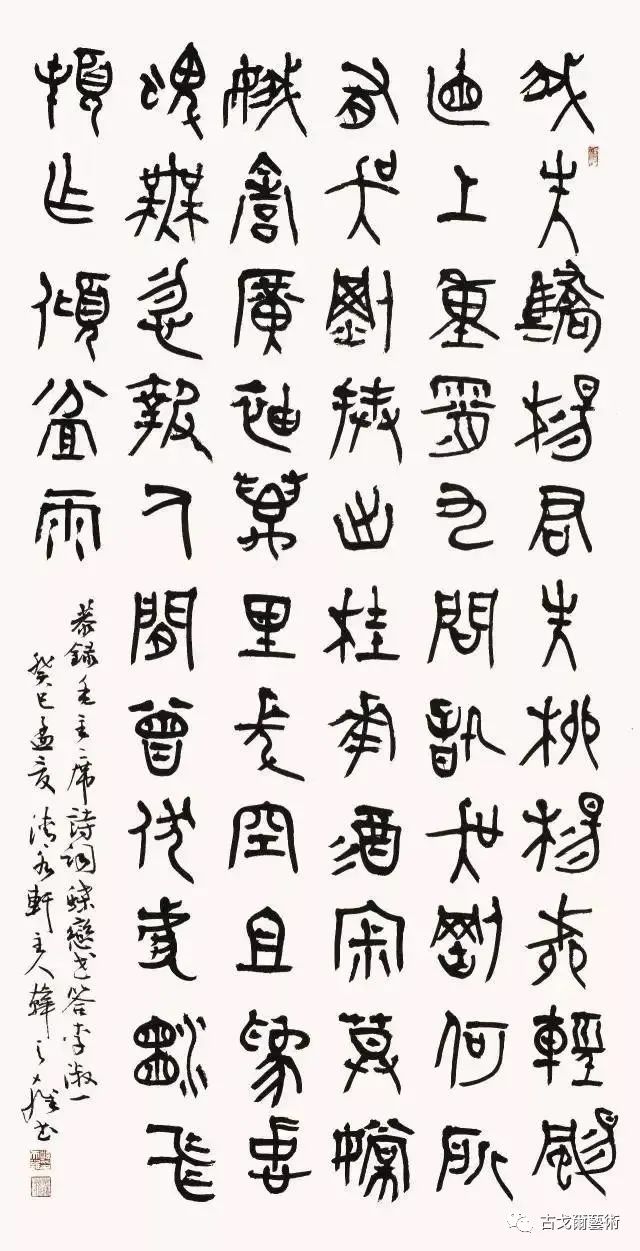 我失驕楊君失柳楊柳輕颺
直上重霄九問訊吳剛何所
有吳剛捧出桂花酒寂寞嫦
娥舒廣袖萬里長空且為忠
魂舞忽報人間曾伏虎淚飛
頓作傾盆雨
恭錄毛主席詩詞蝶戀花答李淑一
癸巳孟夏 軒主人韓之書
古戈爾藝術